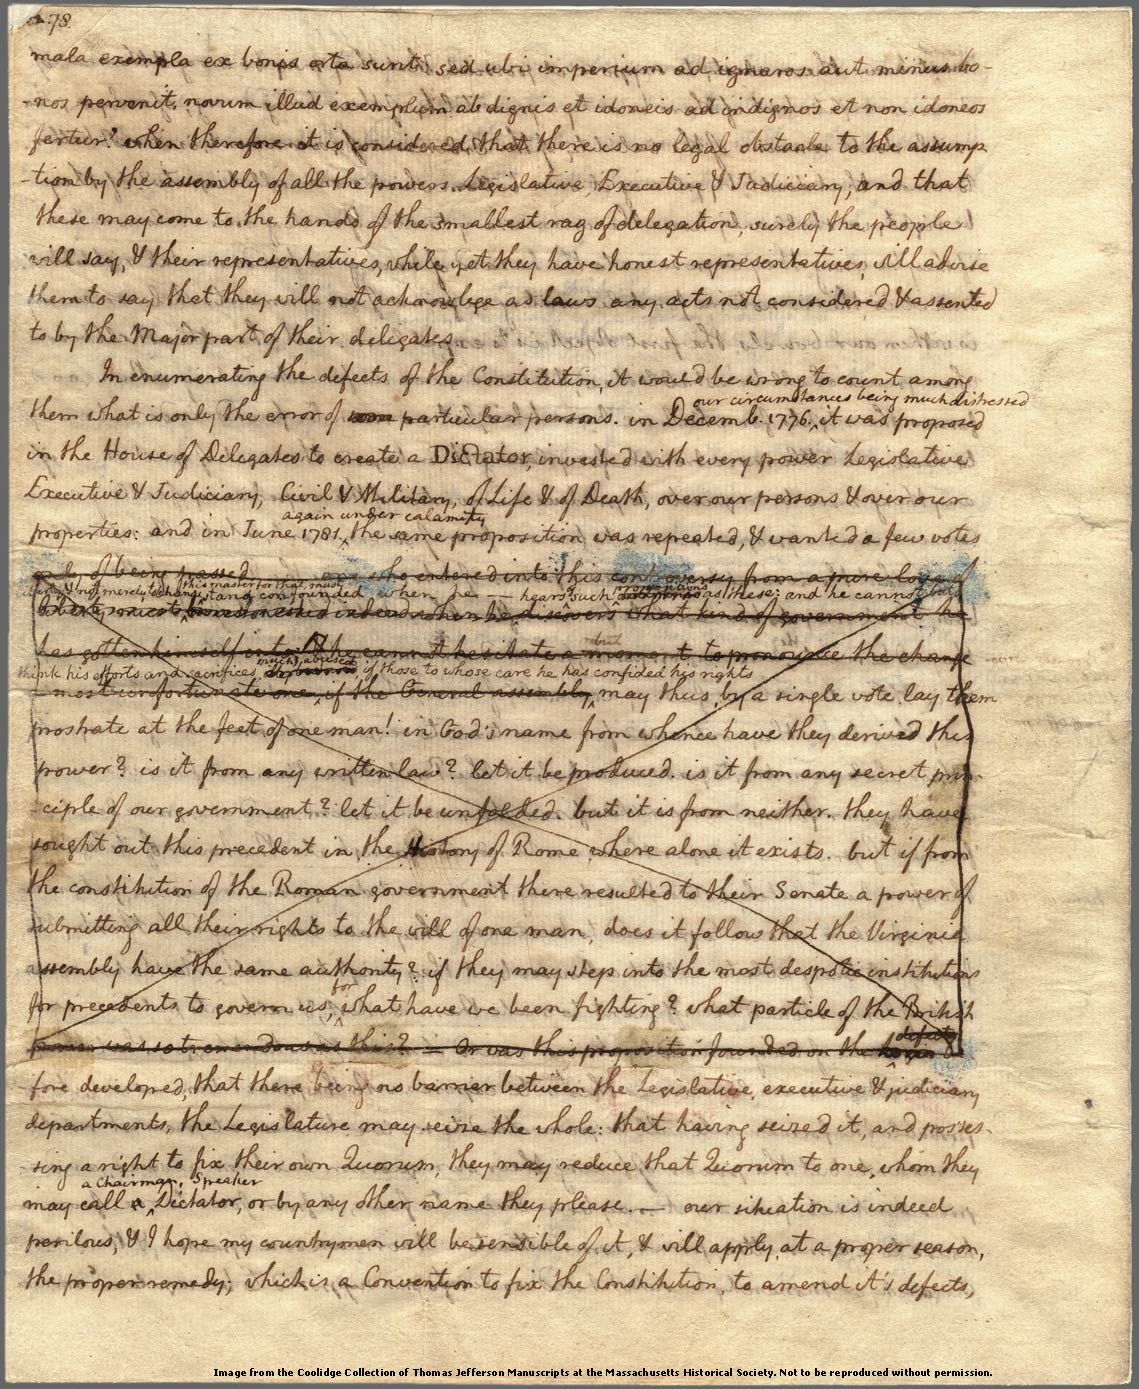 78.
mala exempla ex bonis orta sunt; sed ubi imperium ad ignaros aut minus bo-
-nos pervenit, novum illud exemplum ab dignis et idoneis ad indignos et non idoneos
fertur.' when therefore it is considered, that there is no legal obstacle to the assump
-tion by the assembly of all the powers Legislative, Executive & Judiciary, and that
these may come to the hands of the smallest rag of delegation, surely the people
will say, & their representatives, while yet they have honest representatives, will advise
them to say that they will not acknowlege as laws any acts not considered & assented
to by the Major part of their delegates.
In enumerating the defects of the Constitution, it would be wrong to count among
our circumstances being much distressed
them what is only the error of particular persons. in Decemb. 1776. it was proposed
in the House of Delegates to create a Dictator, invested with every power Legislative
Executive & Judiciary, Civil & Military, of Life & of Death, over our persons & over our
again under calamity
properties: and in June 1781. the same proposition was repeated, & wanted a few votes
only of being passed. one who entered into this controversy from a pure love of
this master for that, must
stand confounded when he — hears of such propositions as these: and he cannot but
indeed when he discovers what kind of government he
has gotten himself into. he cannot hesitate a moment to pronounce the change
but
think his efforts and sacrifices much abused, if those to whose care he has confided his rights
a most unfortunate one, if the General assembly may thus, by a single vote, lay them
prostrate at the feet of one man! in God's name from whence have they derived this
power? is it from any written law? let it be produced. is it from any secret prin-
-ciple of our government? let it be unfolded. but it is from neither. they have
sought out this precedent in the History of Rome where alone it exists. but if from
the constitution of the Roman government there resulted to their Senate a power of
submitting all their rights to the will of one man, does it follow that the Virginia
assembly have the same authority? if they may step into the most despotic institutions
for
for precedents to govern us, what have we been fighting? what particle of the British
defect
power was so tremendous as this? — Or was this proposition founded on the be
fore developed, that there being no barrier between the Legislative, executive & judiciary
departments, the Legislature may seize the whole: that having seized it, and posses-
-sing a right to fix their own Quorum, they may reduce that Quorum to one, whom they
a Chairman, Speaker
may call a Dictator, or by any other name they please. — our situation is indeed
perilous, & I hope my countrymen will be sensible of it, & will apply, at a proper season,
the proper remedy; which is a Convention to fix the Constitution, to amend it's defects,
Image from the Coolidge Collection of Thomas Jefferson Manuscripts at the Massachusetts Historical Society. Not to be reproduced without permission.